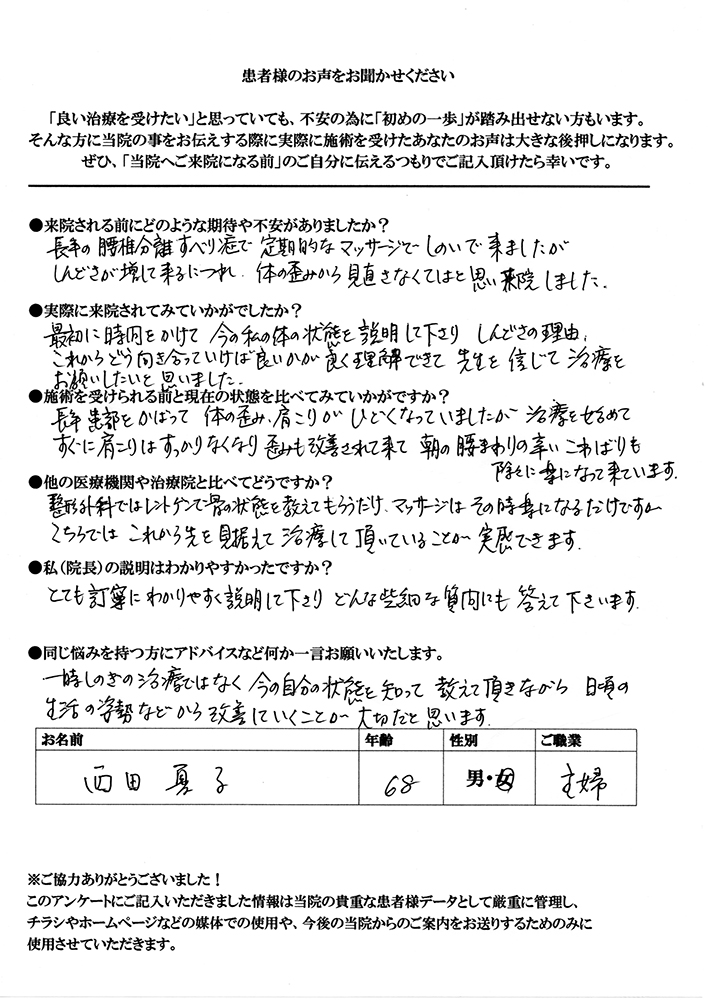 患者様のお声をお聞かせください
「良い治療を受けたい」と思っていても、不安の為に「初めの一歩」が踏み出せない方もいます。
そんな方に当院の事をお伝えする際に実際に施術を受けたあなたのお声は大きな後押しになります。
ぜひ、「当院へご来院になる前」のご自分に伝えるつもりでご記入頂けたら幸いです。
●来院される前にどのような期待や不安がありましたか？
長年の腰椎分離すべり症で定期的なマッサージでしのいで来ましたが
しんどさが増して来るにつれ、体の歪みから見直さなくてはと思い来院しました。
●実際に来院されてみていかがでしたか？
最初に時間をかけて今の私の体の状態を説明して下さり しんどさの理由、
これからどう向き合っていけば良いかが良く理解できて 先生を信じて治療を
お願いしたいと思いました。
●施術を受けられる前と現在の状態を比べてみていかがですか？
長年患部をかばって体の歪み、肩こりがひどくなっていましたが 治療を始めて
すぐに肩こりはすっかりなくなり歪みも改善されて来て 朝の腰まわりの辛いこわばりも
除々に楽になって来ています。
●他の医療機関や治療院と比べてどうですか？
整形外科ではレントゲンで骨の状態を教えてもらうだけ、マッサージはその時楽になるだけですが
こちらではこれから先を見据えて治療して頂いていることが実感できます。
●私（院長）の説明はわかりやすかったですか？
とても丁寧にわかりやすく説明して下さり どんな些細な質問にも答えて下さいます。
●同じ悩みを持つ方にアドバイスなど何か一言お願いいたします。
一時しのぎの治療ではなく 今の自分の状態を知って 教えて頂きながら 日頃の
生活の姿勢などから改善していくことが大切だと思います。
お名前 年齢 性別 ご職業
西田 夏子 68 男・女 主婦
※ご協力ありがとうございました！
このアンケートにご記入いただきました情報は当院の貴重な患者様データとして厳重に管理し、
チラシやホームページなどの媒体での使用や、今後の当院からのご案内をお送りするためのみに
使用させていただきます。